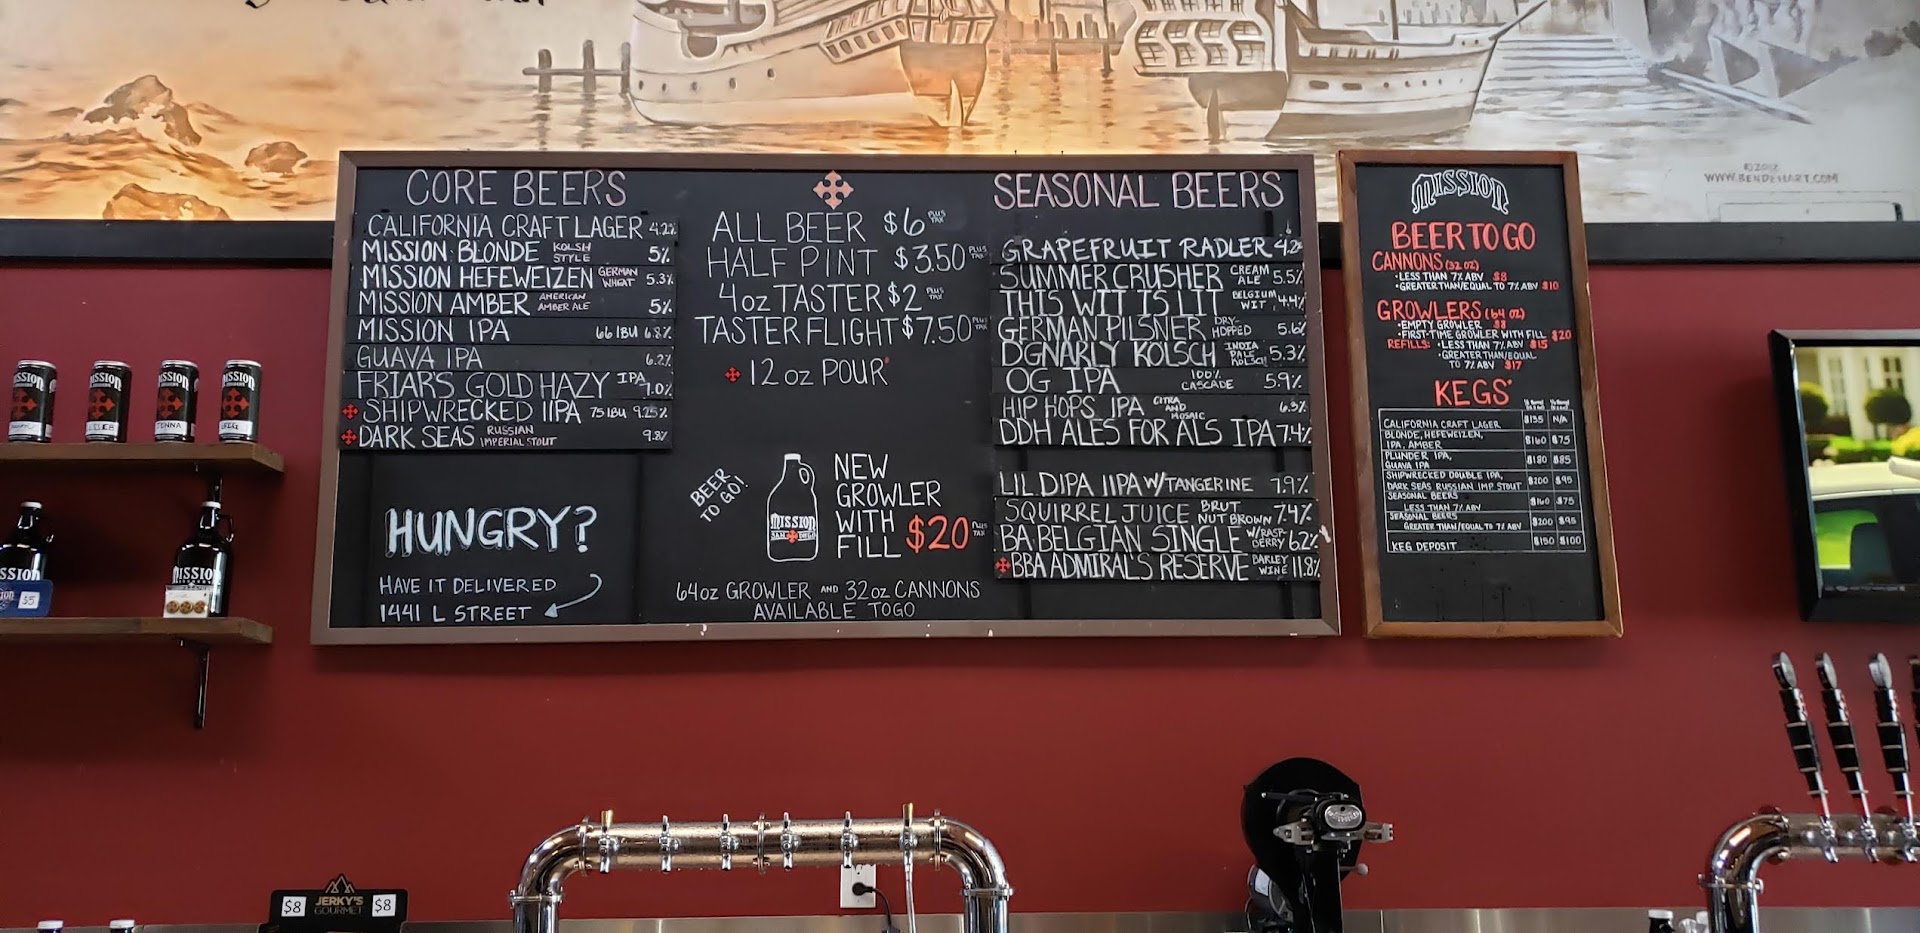 CORE BEERS
CALIFORNIA CRAFT LAGER 4.2%
MISSION BLONDE KOLSH STYLE 5%
MISSION HEFEWEIZEN GERMAN WHEAT 5.3%
MISSION AMBER AMERICAN AMBER ALE 5%
MISSION IPA 66 IBU 6.8%
GUAVA IPA 6.2%
FRIAR'S GOLD HAZY IPA 7.0%
SHIPWRECKED IIPA 75 IBU 9.25%
DARK SEAS RUSSIAN IMPERIAL STOUT 9.8%
HUNGRY?
HAVE IT DELIVERED
1441 L STREET
ALL BEER $6 PLUS TAX
HALF PINT $3.50 PLUS TAX
4oz TASTER $2 PLUS TAX
TASTER FLIGHT $7.50 PLUS TAX
12 oz POUR*
BEER TO GO!
MISSION
SAN DIEGO
NEW
GROWLER
WITH
FILL $20 PLUS TAX
64oz GROWLER AND 32oz CANNONS
AVAILABLE TOGO
SEASONAL BEERS
GRAPEFRUIT RADLER 4.2%
SUMMER CRUSHER CREAM ALE 5.5%
THIS WIT IS LIT BELGIUM WIT 4.4%
GERMAN PILSNER DRY-HOPPED 5.6%
DGNARLY KOLSCH INDIA PALE KOLSCH 5.3%
OG IPA 100% CASCADE 5.9%
HIP HOPS IPA CITRA AND MOSAIC 6.3%
DDH ALES FOR ALS IPA 7.4%
LIL DIPA IIPA W/TANGERINE 7.9%
SQUIRREL JUICE BRUT NUT BROWN 7.4%
BA BELGIAN SINGLE W/RASPBERRY 6.2%
BBA ADMIRAL'S RESERVE BARLEY WINE 11.8%
MISSION
BEER TO GO
CANNONS (32 OZ)
•LESS THAN 7% ABV $8
•GREATER THAN/EQUAL TO 7% ABV $10
GROWLERS (64 OZ)
•EMPTY GROWLER $8
•FIRST-TIME GROWLER WITH FILL $20
REFILLS: •LESS THAN 7% ABV $15
•GREATER THAN/EQUAL
TO 7% ABV $17
KEGS*
CALIFORNIA CRAFT LAGER $135 N/A
BLONDE, HEFEWEIZEN,
IPA, AMBER $160 $75
PLUNDER IPA,
GUAVA IPA $180 $85
SHIPWRECKED DOUBLE IPA,
DARK SEAS RUSSIAN IMP STOUT $200 $95
SEASONAL BEERS
LESS THAN 7% ABV $160 $75
SEASONAL BEERS
GREATER THAN/EQUAL TO 7% ABV $200 $95
KEG DEPOSIT $150 $100
©2012
WWW.BENDEHART.COM
MISSION
MISSION
MISSION
MISSION
MISSION
$5
$8 JERKY'S GOURMET $8